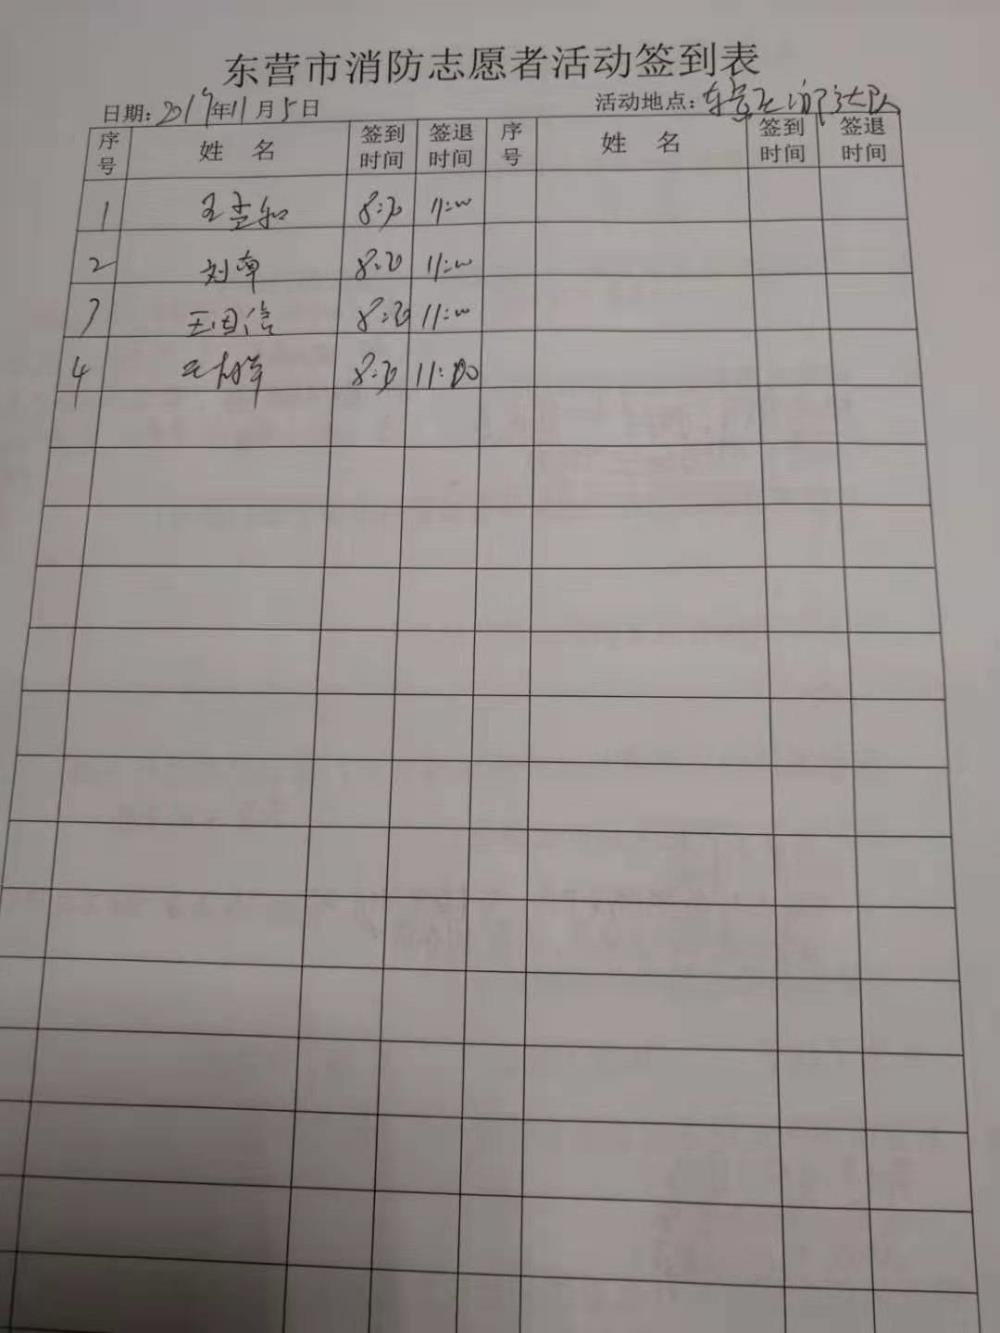 东营市消防志愿者活动签到表
日期：2019年11月5日 活动地点：东营区消防大队
序号 姓名 签到时间 签退时间 序号 姓名 签到时间 签退时间
1 王 8:30 11:00
2 刘 8:30 11:00
3 王国信 8:30 11:00
4 8:30 11:00